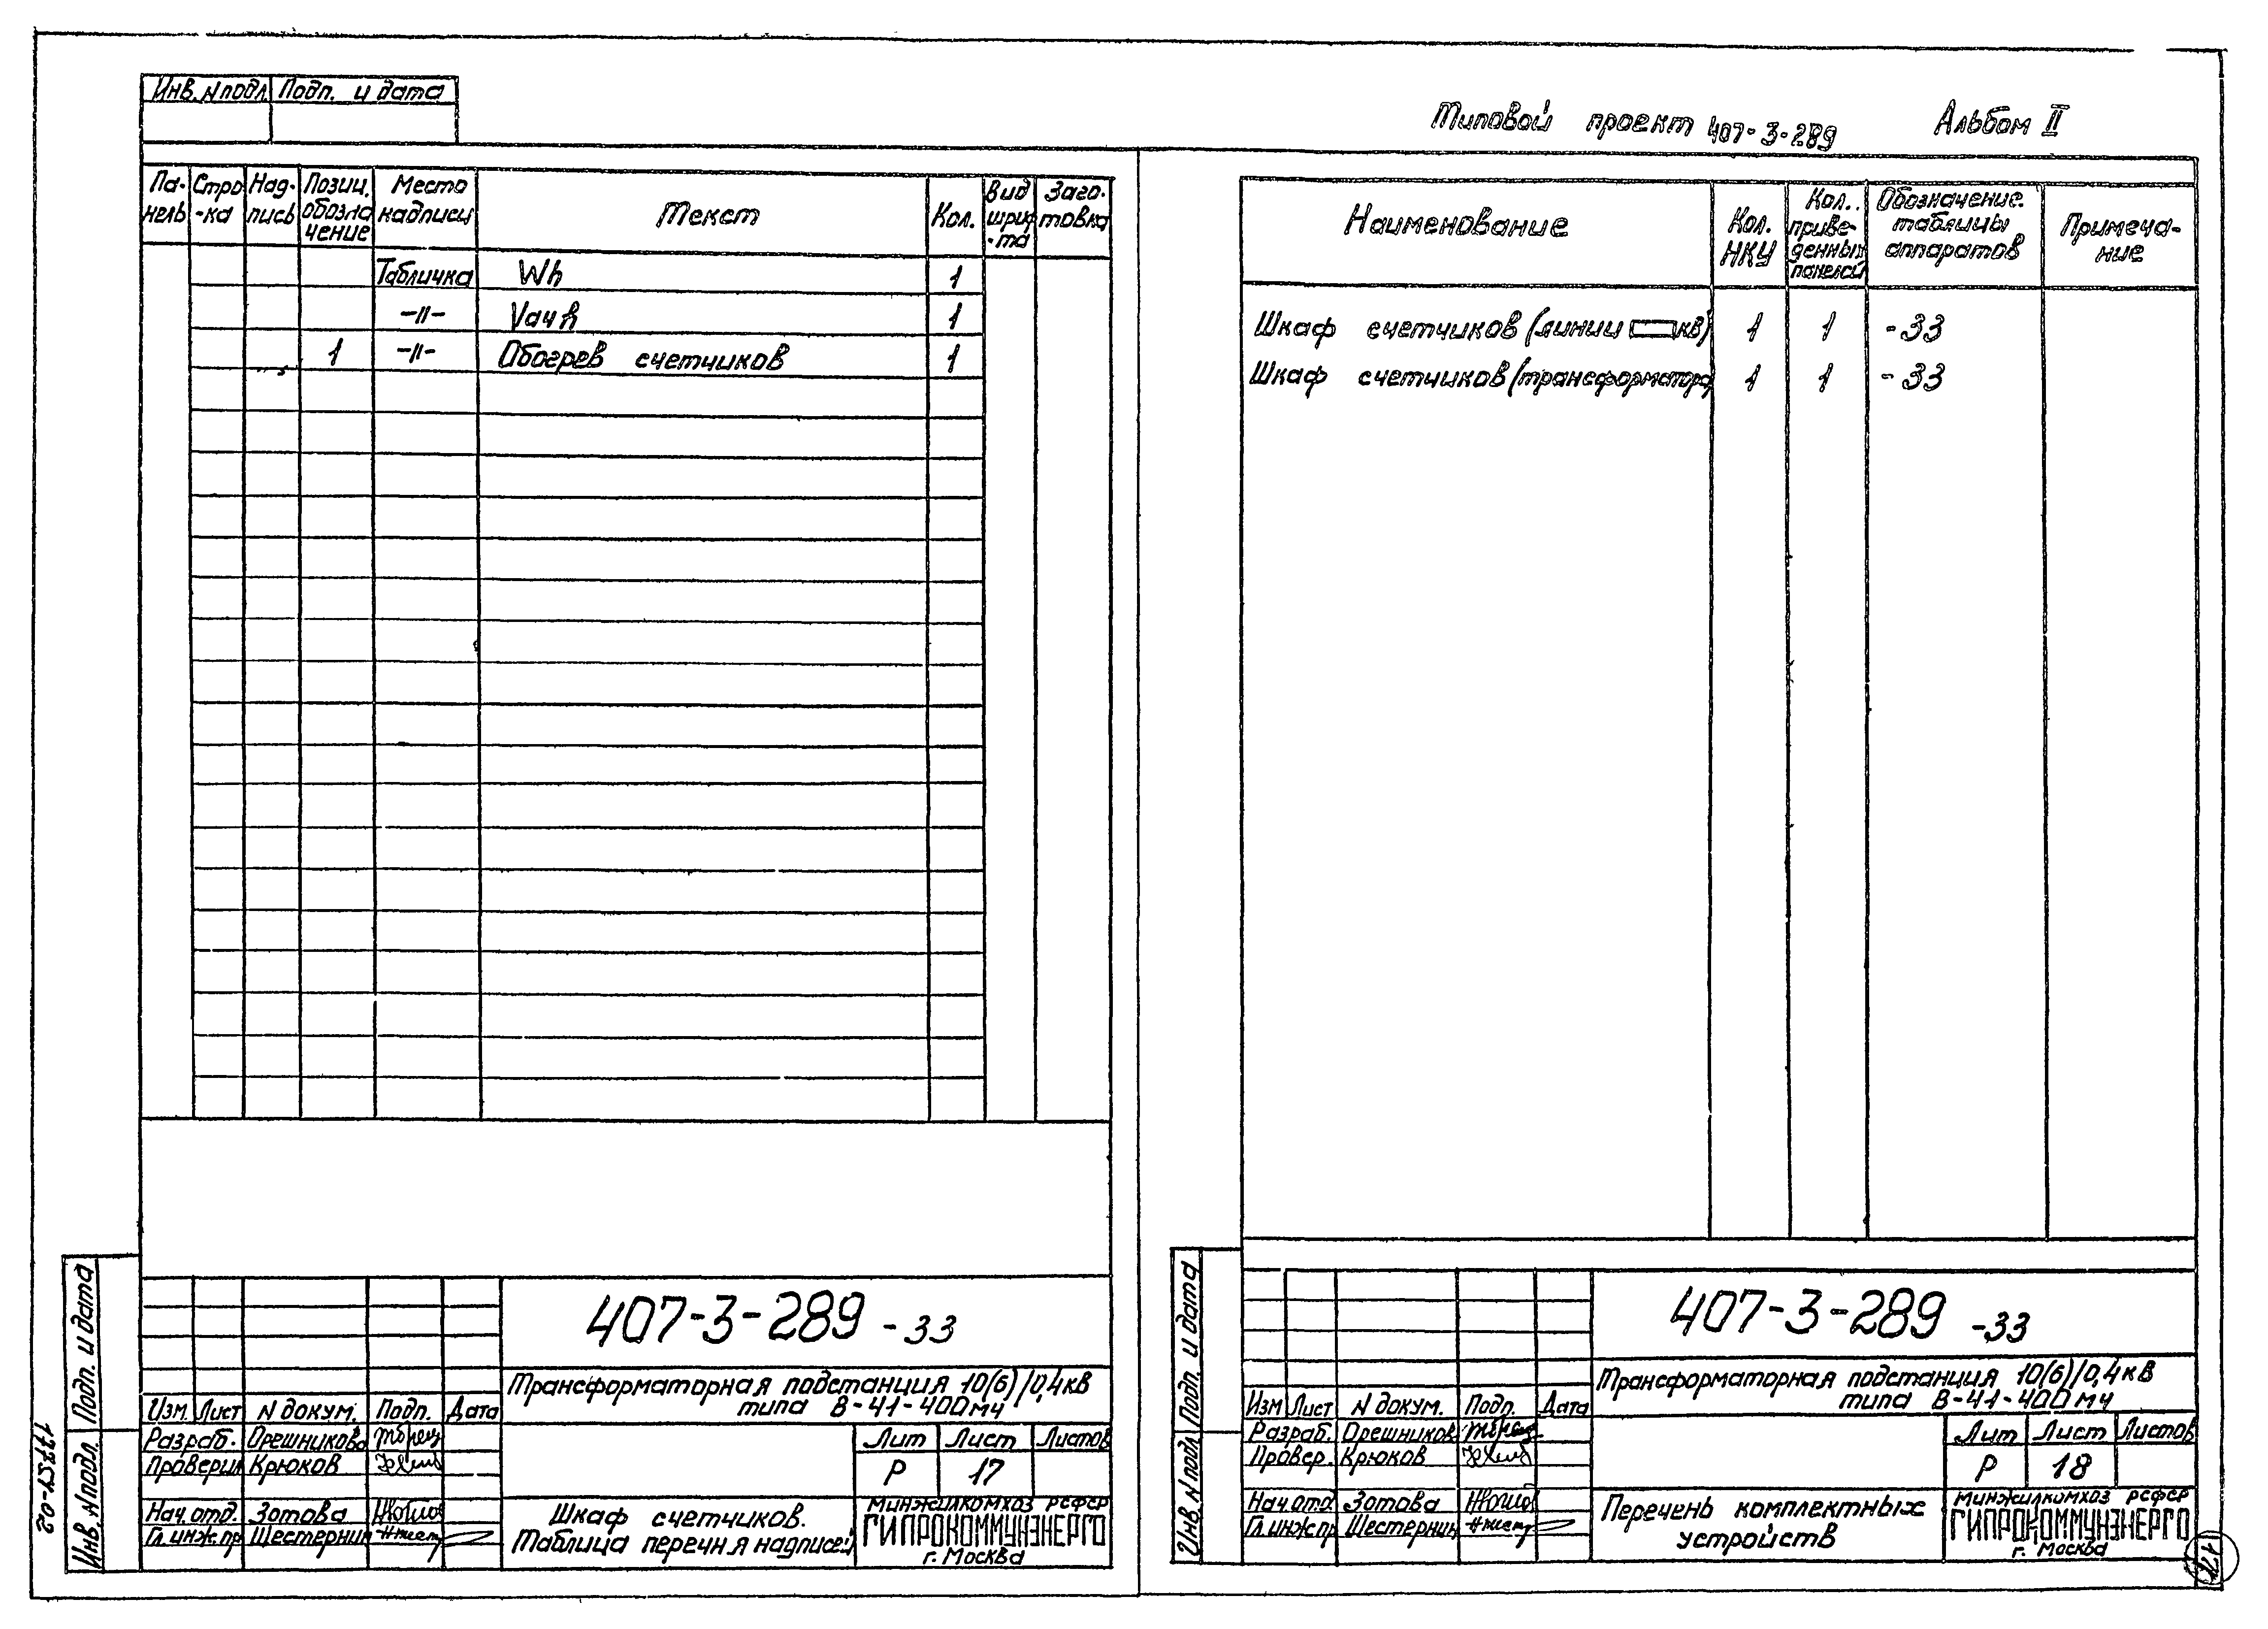 Инв. N подл. Подп. и дата
Типовой проект 407-3-289 Альбом II
Па-нель Стро-ка Над-пись Позиц. обозначение Место надписи Текст Кол. Вид шриф-та Заго-товка
Табличка Wh 1
-"- Varh 1
1 -"- Обогрев счетчиков 1
407-3-289 -33
Трансформаторная подстанция 10(6)/0,4кв
типа В-41-400 мч
Изм. Лист N докум. Подп. Дата
Разраб. Орешникова
Проверил Крюков
Нач. отд. Зотова
Гл. инж. пр. Шестернин
Лит Лист Листов
Р 17
Шкаф счетчиков.
Таблица перечня надписей
Минжилкомхоз РСФСР
ГИПРОКОММУНЭНЕРГО
г. Москва
Подп. и дата
Инв. N подл.
17857-02
Наименование Кол. НКУ Кол. приве-денных панелей Обозначение таблицы аппаратов Примеча-ние
Шкаф счетчиков (линии кв) 1 1 -33
Шкаф счетчиков (трансформатора) 1 1 -33
407-3-289 -33
Трансформаторная подстанция 10(6)/0,4кв
типа В-41-400 мч
Изм Лист N докум. Подп. Дата
Разраб. Орешников
Провер. Крюков
Нач. отд Зотова
Гл. инж. пр Шестернин
Лит Лист Листов
Р 18
Перечень комплектных
устройств
Минжилкомхоз РСФСР
ГИПРОКОММУНЭНЕРГО
г. Москва
Подп. и дата
Инв. N подл
17